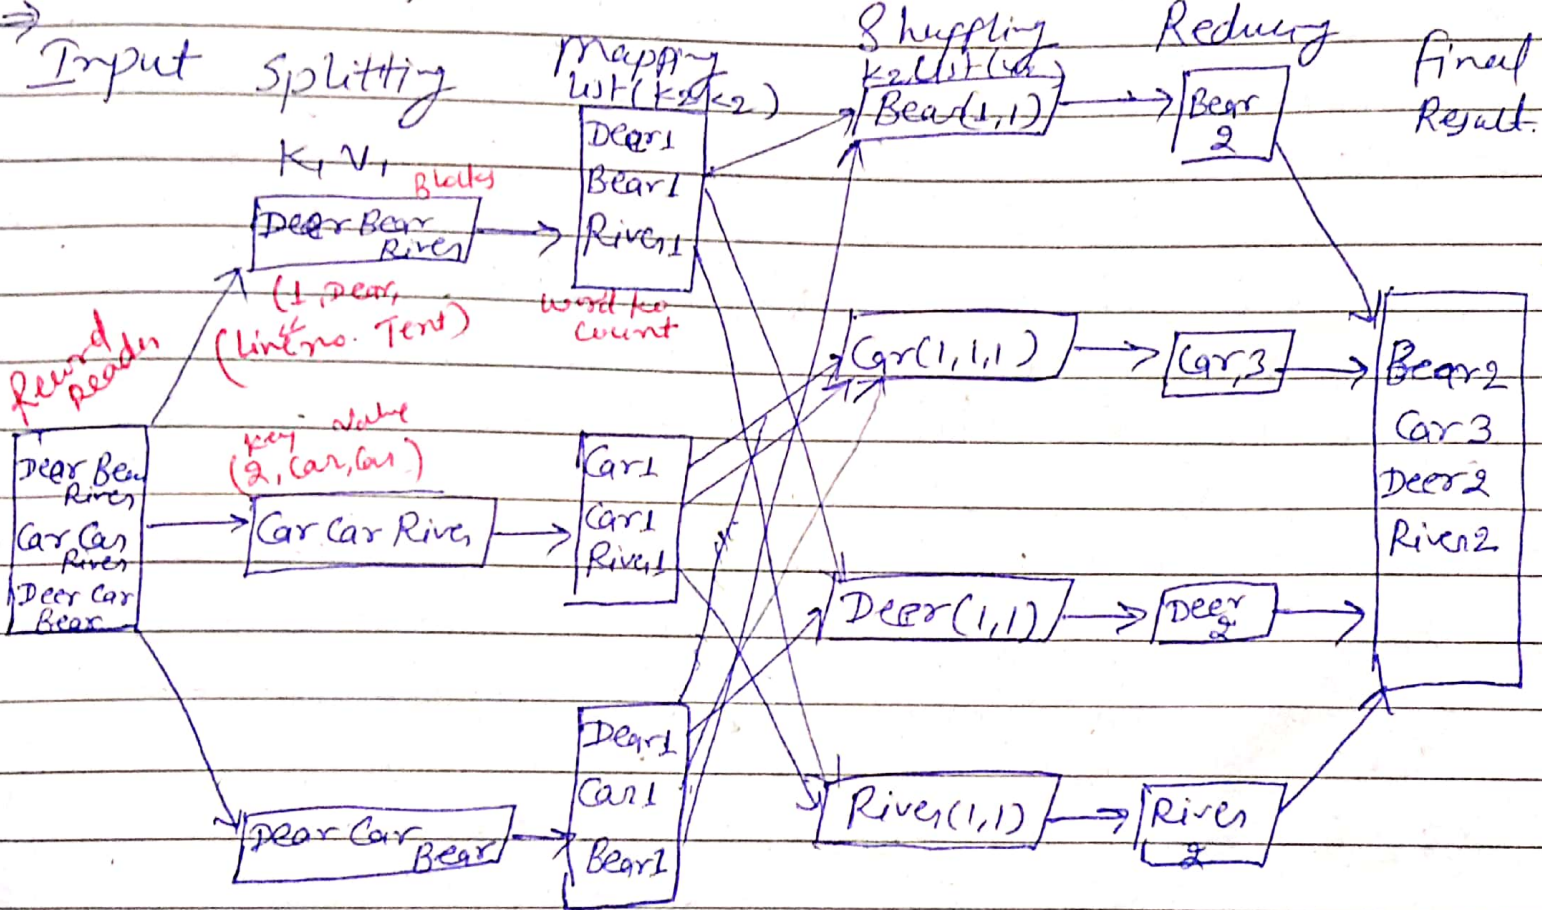 ⇒
Input
Splitting
Mapping
list(K2,K2)
Shuffling
K2,List(V2)
Reducing
Final
Result.
K1 V1
Blocks
Deer Bear
River
(1, Dear,
(Line no. Text)
Record
Reader
Dear Bear
River
Car Car
River
Deer Car
Bear
Key Value
(2, Car, Car)
Car Car River
Dear Car
Bear
Dear1
Bear1
River1
word to
count
Car1
Car1
River1
Dear1
Car1
Bear1
Bear(1,1)
Car(1,1,1)
Deer(1,1)
River(1,1)
Bear
2
Car,3
Deer
2
River
2
Bear2
Car3
Deer2
River2